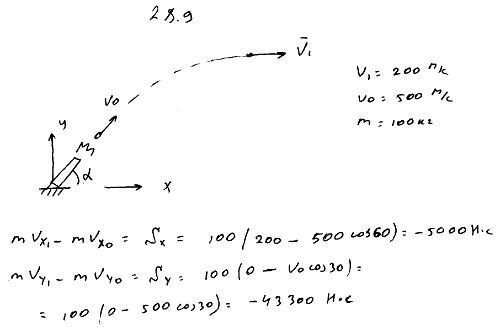 28.9
V̄₁
V₁ = 200 м/с
V₀ = 500 м/с
m = 100 кг
V₀
y
M
α
x
mVx₁ - mVx₀ = Sx = 100(200 - 500 cos60) = -5000 Н·с
mVy₁ - mVy₀ = Sy = 100(0 - V₀ cos30) =
= 100(0 - 500 cos30) = -43300 Н·с